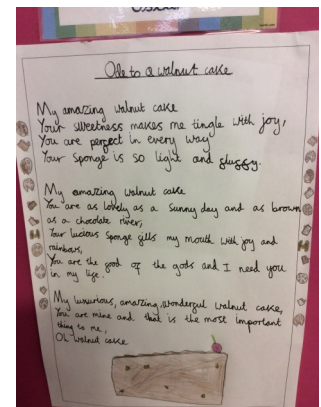 Ode to a walnut cake
My amazing walnut cake
Your sweetness makes me tingle with joy,
You are perfect in every way
Your sponge is so light and fluffy.
My amazing walnut cake
You are as lovely as a sunny day and as brown
as a chocolate river,
Your lucious sponge fills my mouth with joy and
rainbows,
You are the food of the gods and I need you
in my life.
My luxurious, amazing, wonderful walnut cake,
You are mine and that is the most important
thing to me,
Oh walnut cake